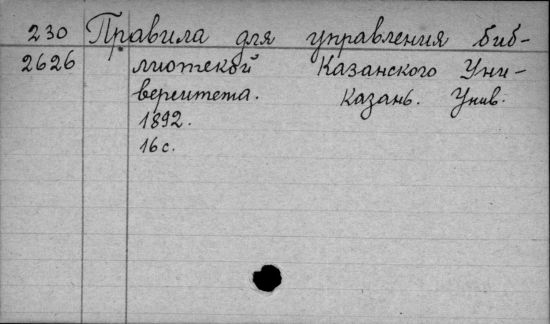 230 Правила для управления биб-
2626 лиотекой Казанского Уни-
верситета. Казань. Унив.
1892.
16 с.